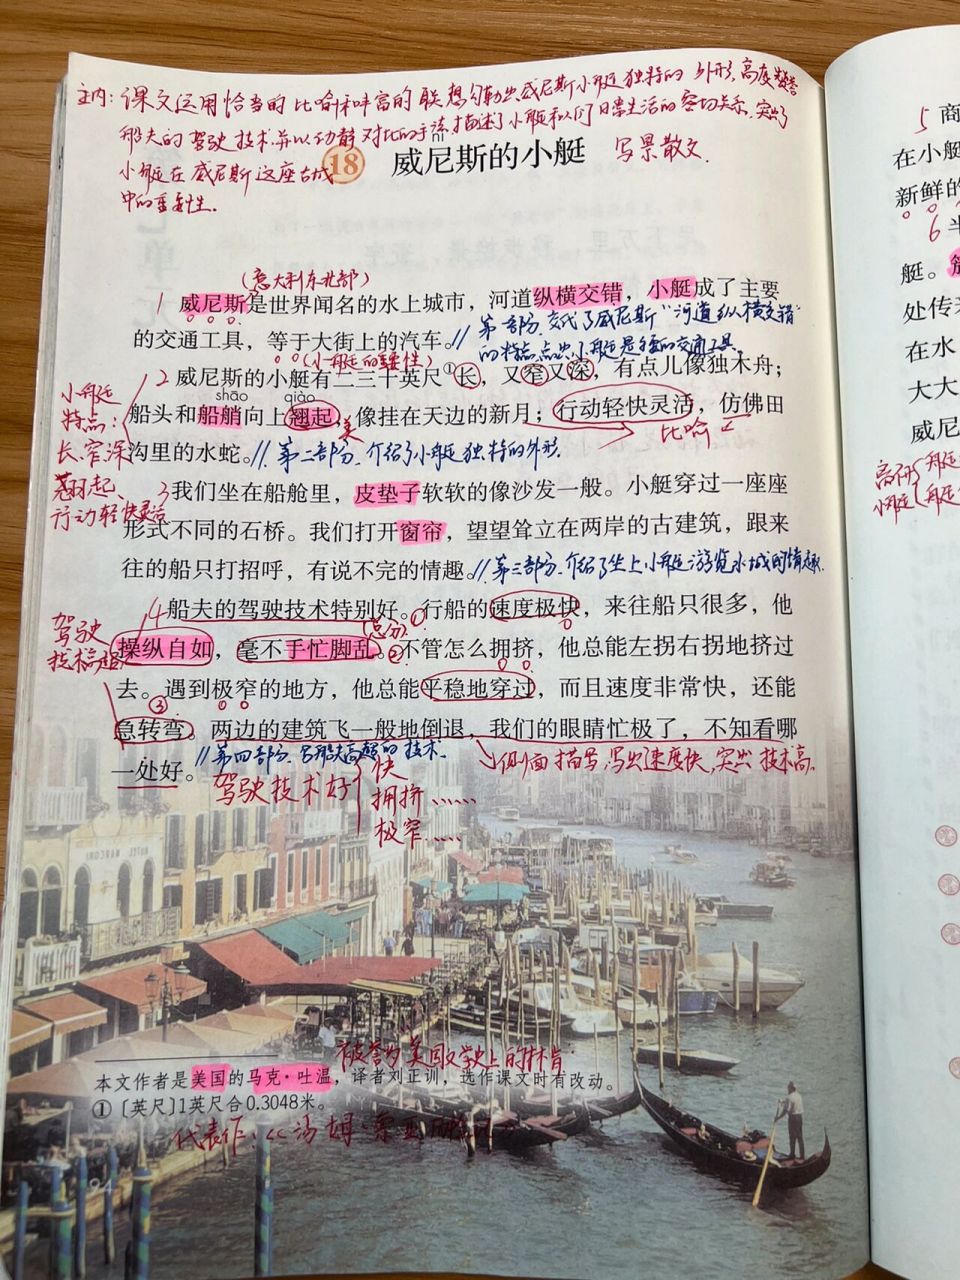 主内：课文运用恰当的比喻和丰富的联想勾勒出威尼斯小艇独特的外形，高度赞誉
船夫的驾驶技术，并以动静对比的手法描述了小艇和人们日常生活的密切关系，突出了
小艇在威尼斯这座古城
中的重要性。
18 威尼斯的小艇
写景散文.
(意大利东北部)
1 威尼斯是世界闻名的水上城市，河道纵横交错，小艇成了主要
的交通工具，等于大街上的汽车。
// 第一部分，交代了威尼斯“河道纵横交错”
的特点，点出小艇是主要的交通工具.
(小艇的重要性)
2 威尼斯的小艇有二三十英尺①长，又窄又深，有点儿像独木舟；
shāo qiào
船头和船艄向上翘起，像挂在天边的新月；行动轻快灵活，仿佛田
美
比喻
沟里的水蛇。
// 第二部分，介绍了小艇独特的外形.
小艇
特点：
长、窄、深
翘起、
行动轻快灵活
3 我们坐在船舱里，皮垫子软软的像沙发一般。小艇穿过一座座
形式不同的石桥。我们打开窗帘，望望耸立在两岸的古建筑，跟来
往的船只打招呼，有说不完的情趣。
// 第三部分，介绍了坐上小艇游览水城的情趣.
4 船夫的驾驶技术特别好。行船的速度极快，来往船只很多，他
(总分) ①
操纵自如，毫不手忙脚乱。②不管怎么拥挤，他总能左拐右拐地挤过
去。遇到极窄的地方，他总能平稳地穿过，而且速度非常快，还能
③
急转弯。两边的建筑飞一般地倒退，我们的眼睛忙极了，不知看哪
一处好。
驾驶
技术高超
// 第四部分，写船夫高超的技术.
侧面描写，写出速度快，突出技术高.
驾驶技术好
快
拥挤……
极窄……
被誉为美国文学史上的林肯.
本文作者是美国的马克·吐温，译者刘正训，选作课文时有改动。
①〔英尺〕1英尺合0.3048米。
代表作：《汤姆·索亚
94
5 商
在小艇
新鲜的
6 半
艇。
处传来
在水
大大
威尼